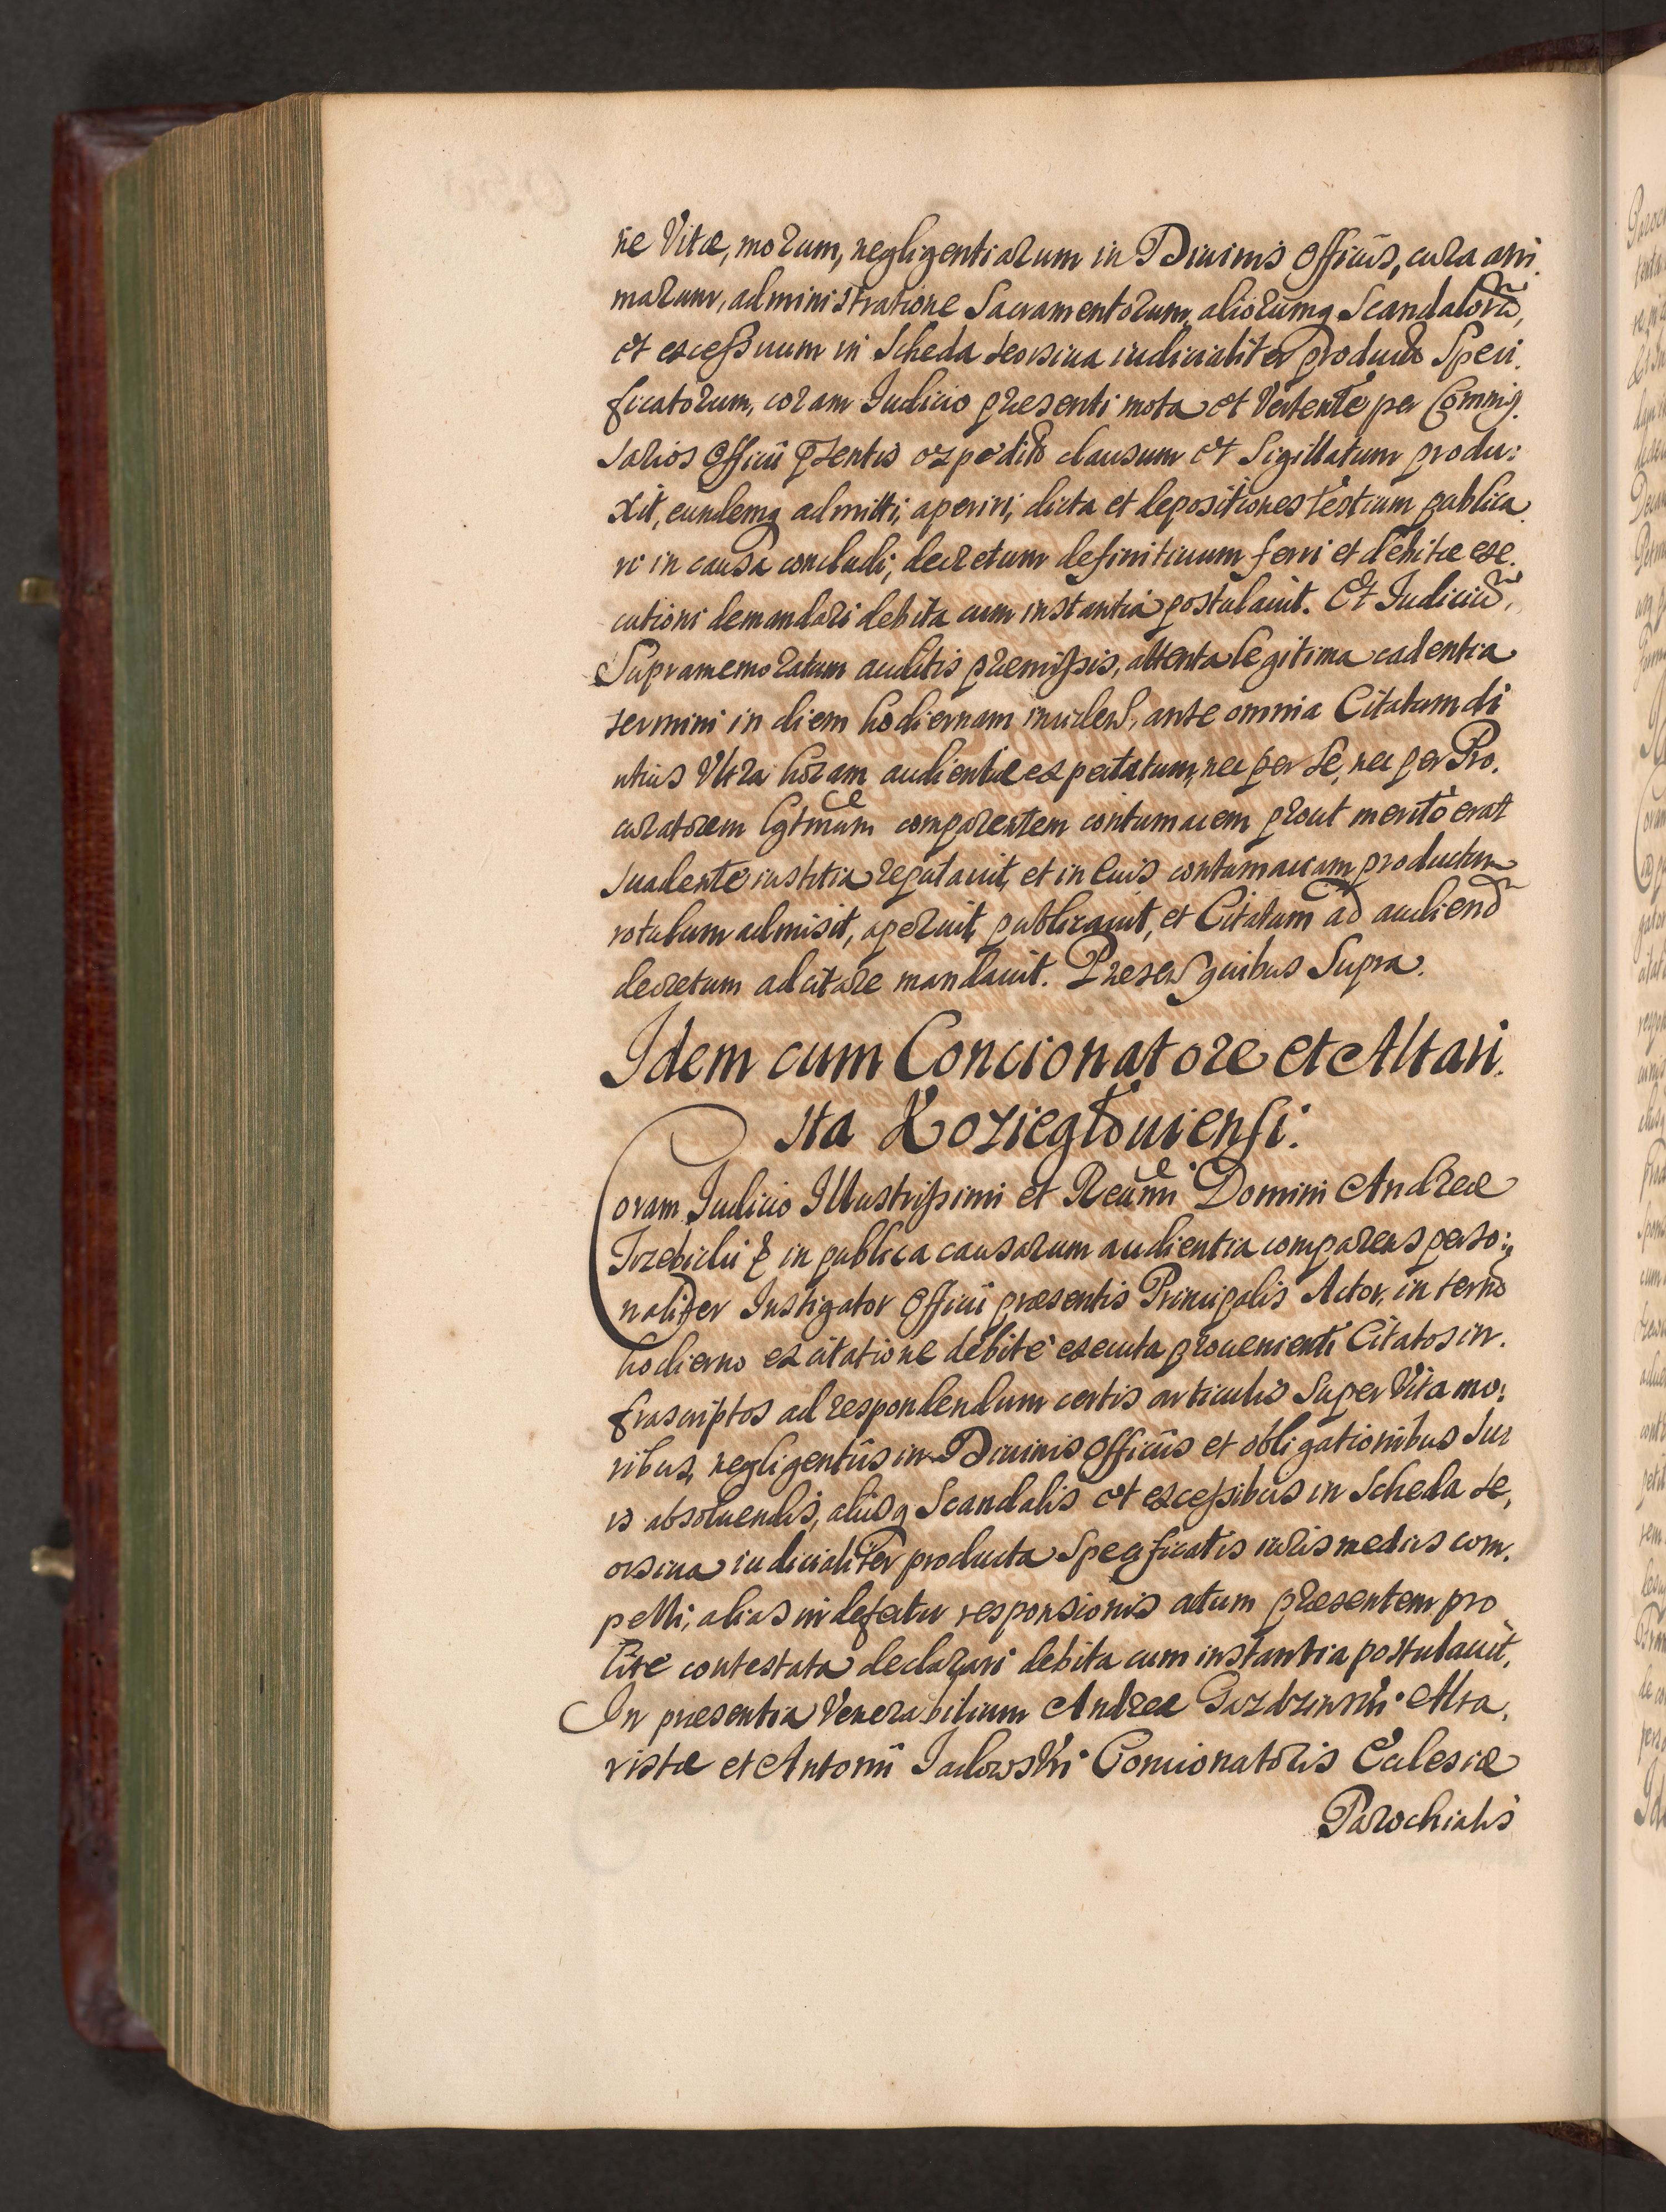 ne Vitæ, morum, negligentiarum in Diuinis Officijs, cura ani
marum, administratione Sacramentorum, aliorumq Scandalorũ,
et excessuum in Scheda seorsiua iudicialiter producta Speci
ficatorum, coram Iudicio præsenti mota et Vertente per Commis
sarios Officii Psentis expedit clausum et Sigillatum produ:
xit, eundemq admitti, aperiri, dicta et depositiones testium publica
ri in causa concludi, decretum definitiuum ferri et debitæ exe
cutioni demandari debita cum instantia postulauit. Et Iudiciũ
Supramemoratum auditis præmissis, attenta legitima cadentia
termini in diem hodiernam ante omnia Citatum di
utius Vltra horam audientiæ expectatum, nec per se, nec per Pro
curatorem lgtmum comparentem contumacem prout merito erat
suadente iustitia reputauit, et in eius contumaciam productum
rotulum admisit, aperuit, publicauit, et Citatum ad audiend
decretum adcitare mandauit. Presen quibus Supra.
Idem cum Concionatore et Altari
sta Koziegłouiensi.
Coram Iudicio Illustrissimi et Reũmi Domini Andreæ
Trzebicki & in publica causarum audientia comparens perso:
naliter Instigator Officii præsentis Principalis Actor, in termo
hodierno ex citatione debite executa proueniente Citatos in
frascriptos ad respondendum certis articulis Super Vita mo:
ribus, negligentiis in Diuinis Officiis et obligationibus Su
is absoluendis, aliisq Scandalis et excessibus in Scheda se
orsiua iudicialiter producta Specificatis iuris mediis com
pelli, alias in defectu responsionis actum præsentem pro
lite contestata declarari debita cum instantia postulauit.
In præsentia Venerabilium Andreæ Alta
ristæ et Antonii Concionatoris Ecclesiæ
Parochialis